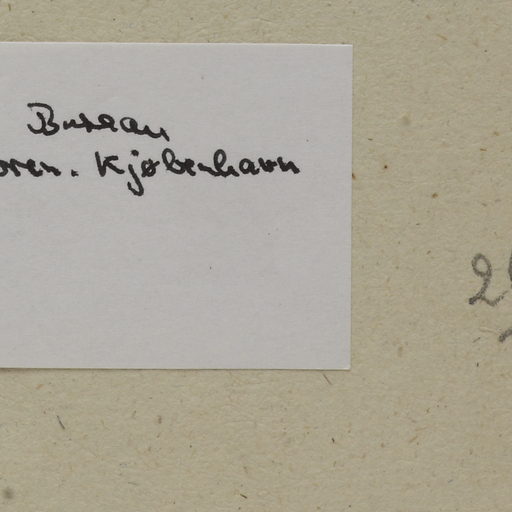 Bureau
oren. Kjøbenhavn
2